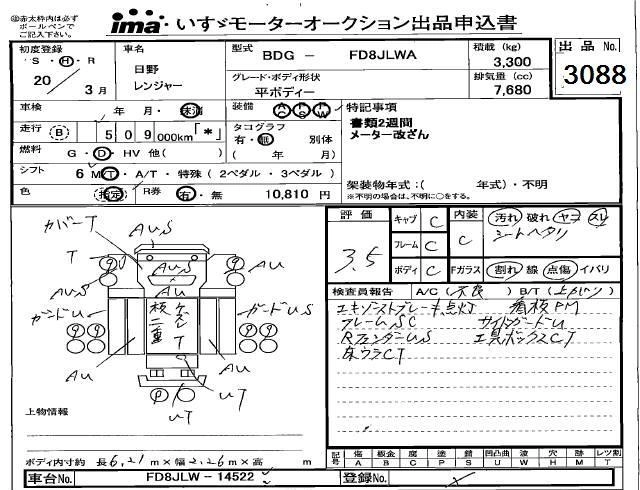 ㊟赤太枠内は必ず
ボールペンで
ご記入下さい。
ima いすゞモーターオークション出品申込書
初度登録 S・H・R 20年 3月
車名 日野 レンジャー
型式 BDG - FD8JLWA
グレード・ボディ形状 平ボディー
積載 (kg) 3,300
排気量 (cc) 7,680
出品 No. 3088
車検 年 月・抹消
装備 AC PS PW
走行 (B) 509000km「*」
タコグラフ 有・無 別体
( 年 月)
燃料 G・D・HV 他( )
シフト 6 MT・A/T・特殊(2ペダル・3ペダル)
色 (指定) R券 有・無 10,810円
特記事項
書類2週間
メーター改ざん
架装物年式:( 年式)・不明
※不明の場合は、不明に○をする。
カバーT AUS
T
AUS
AU
AU
AUS
ガードU
ガードUS
板二重
T
AU
AU
UT
UT
上物情報
ボディ内寸約 長6.21m×幅2.26m×高 m
評価 3.5
キャブ C
フレーム C
ボディ C
内装 C
汚れ 破れ ヤコ スレ
シートヘタリ
Fガラス 割れ 線 点傷 イバリ
検査員報告 A/C(不良) B/T(上がり)
エキゾーストブレーキ点灯 看板PM
フレームSC サイドガードU
RフェンダーUS 工具ボックスCT
床ウラCT
記号 傷A 板金B 腐C 塗P 錆S 凹凸曲U 波W 穴H 跡M レツ割T
車台No. FD8JLW-14522
登録No.